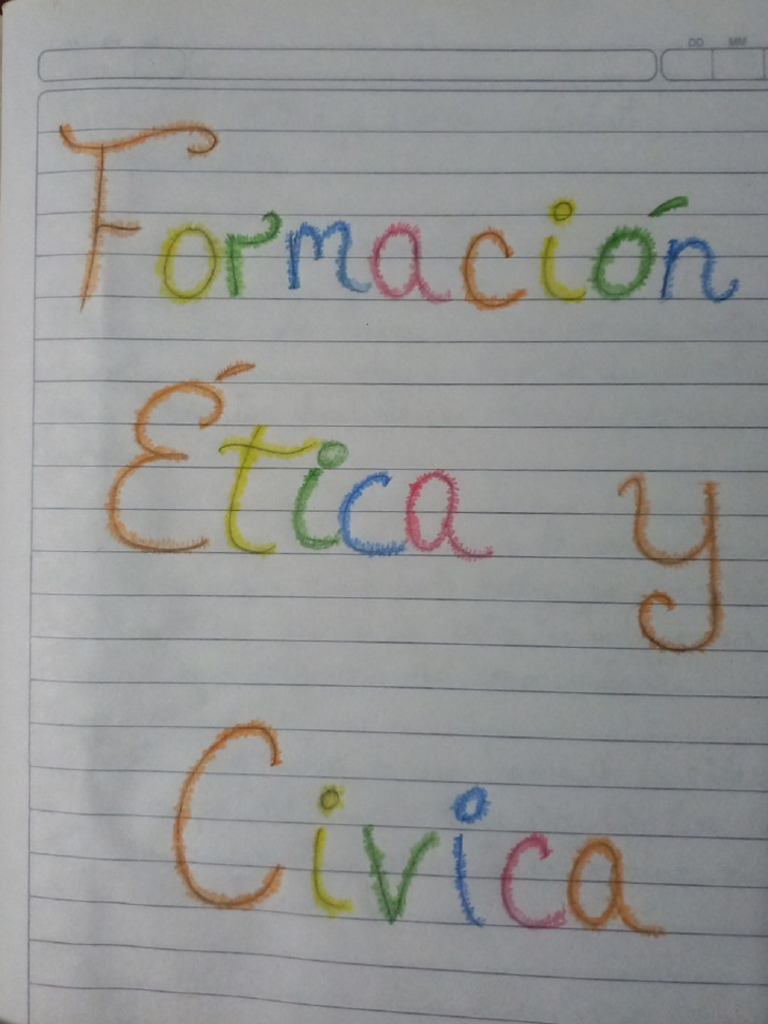 DD MM
Formación
Ética y
Civica